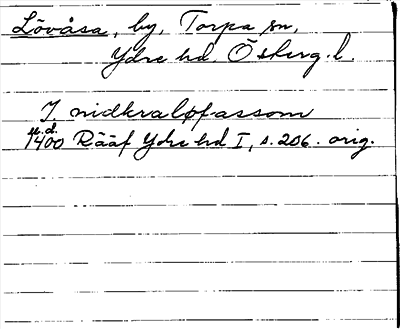 Lövåsa, by, Torpa sn,
Ydre hd. Österg. l.
J nidkraløfassom
u.d.
1400 Rääf Ydre hd I, s. 206. orig.